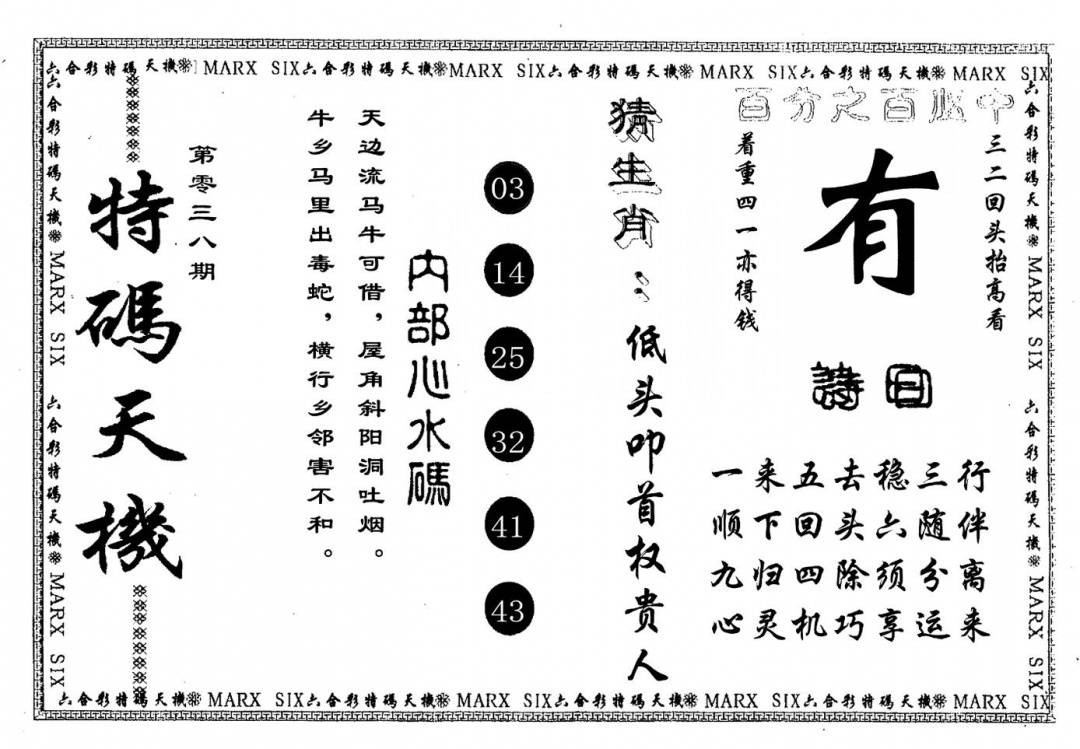 六合彩特碼天機 MARX SIX六合彩特碼天機MARX SIX六合彩特碼天機 MARX SIX六合彩特碼天機 MARX SIX
六合彩特碼天機 MARX SIX 六合彩特碼天機 MARX SIX
特碼天機
第零三八期
天边流马牛可借，屋角斜阳洞吐烟。
牛乡马里出毒蛇，横行乡邻害不和。
内部心水碼
03
14
25
32
41
43
猜生肖：低头叩首权贵人
百分之百必中
三二回头抬高看
有
着重四一亦得钱
詩曰
一来五去稳三行
顺下回头六随伴
九归四除须分离
心灵机巧享运来
六合彩特碼天機 MARX SIX 六合彩特碼天機 MARX SIX
六合彩特碼天機 MARX SIX六合彩特碼天機 MARX SIX六合彩特碼天機 MARX SIX六合彩特碼天機 MARX SIX